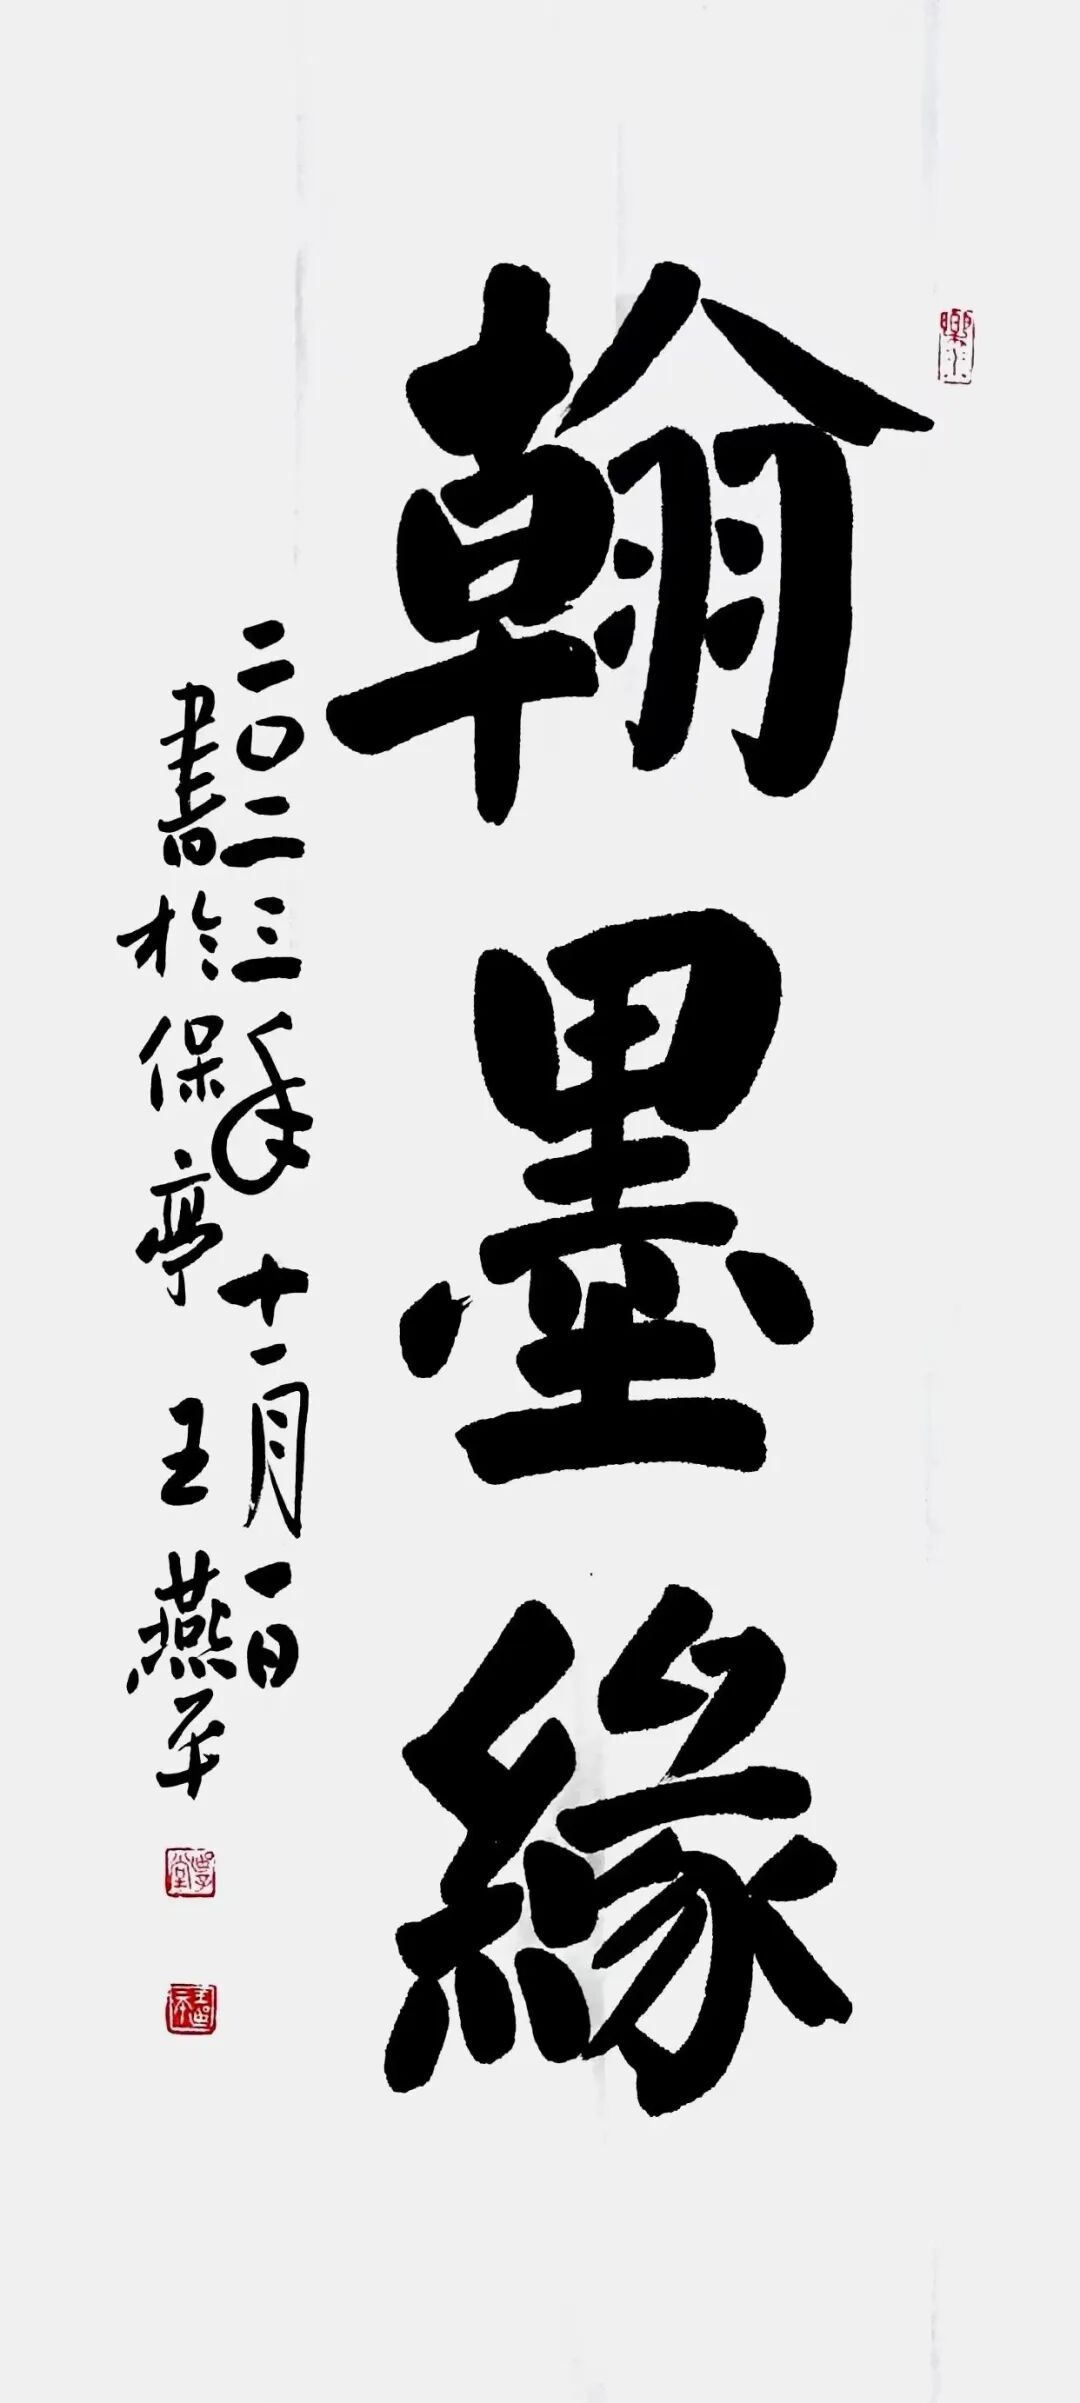 翰墨緣
二〇二三年十一月一日
書於保亭 王燕平